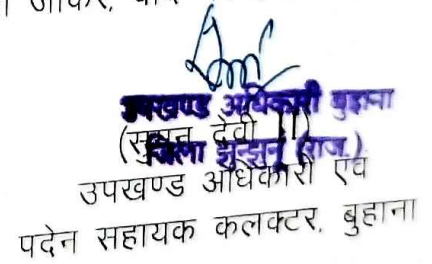 उपखण्ड अधिकारी बुहाना
(सुमन देवी II)
जिला झुन्झुनू (राज.)
उपखण्ड अधिकारी एवं
पदेन सहायक कलक्टर, बुहाना